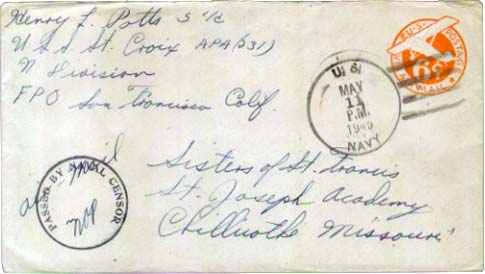 Henry L. Potts S 1/c
U S S St. Croix APA (231)
N Division
FPO San Francisco Calif.
U.S. POSTAGE
6¢
AIR MAIL
MAY
11
P.M.
NAVY
air mail
PASSED BY NAVAL CENSOR
Sisters of St. Francis
St. Joseph Academy
Chillicothe Missouri